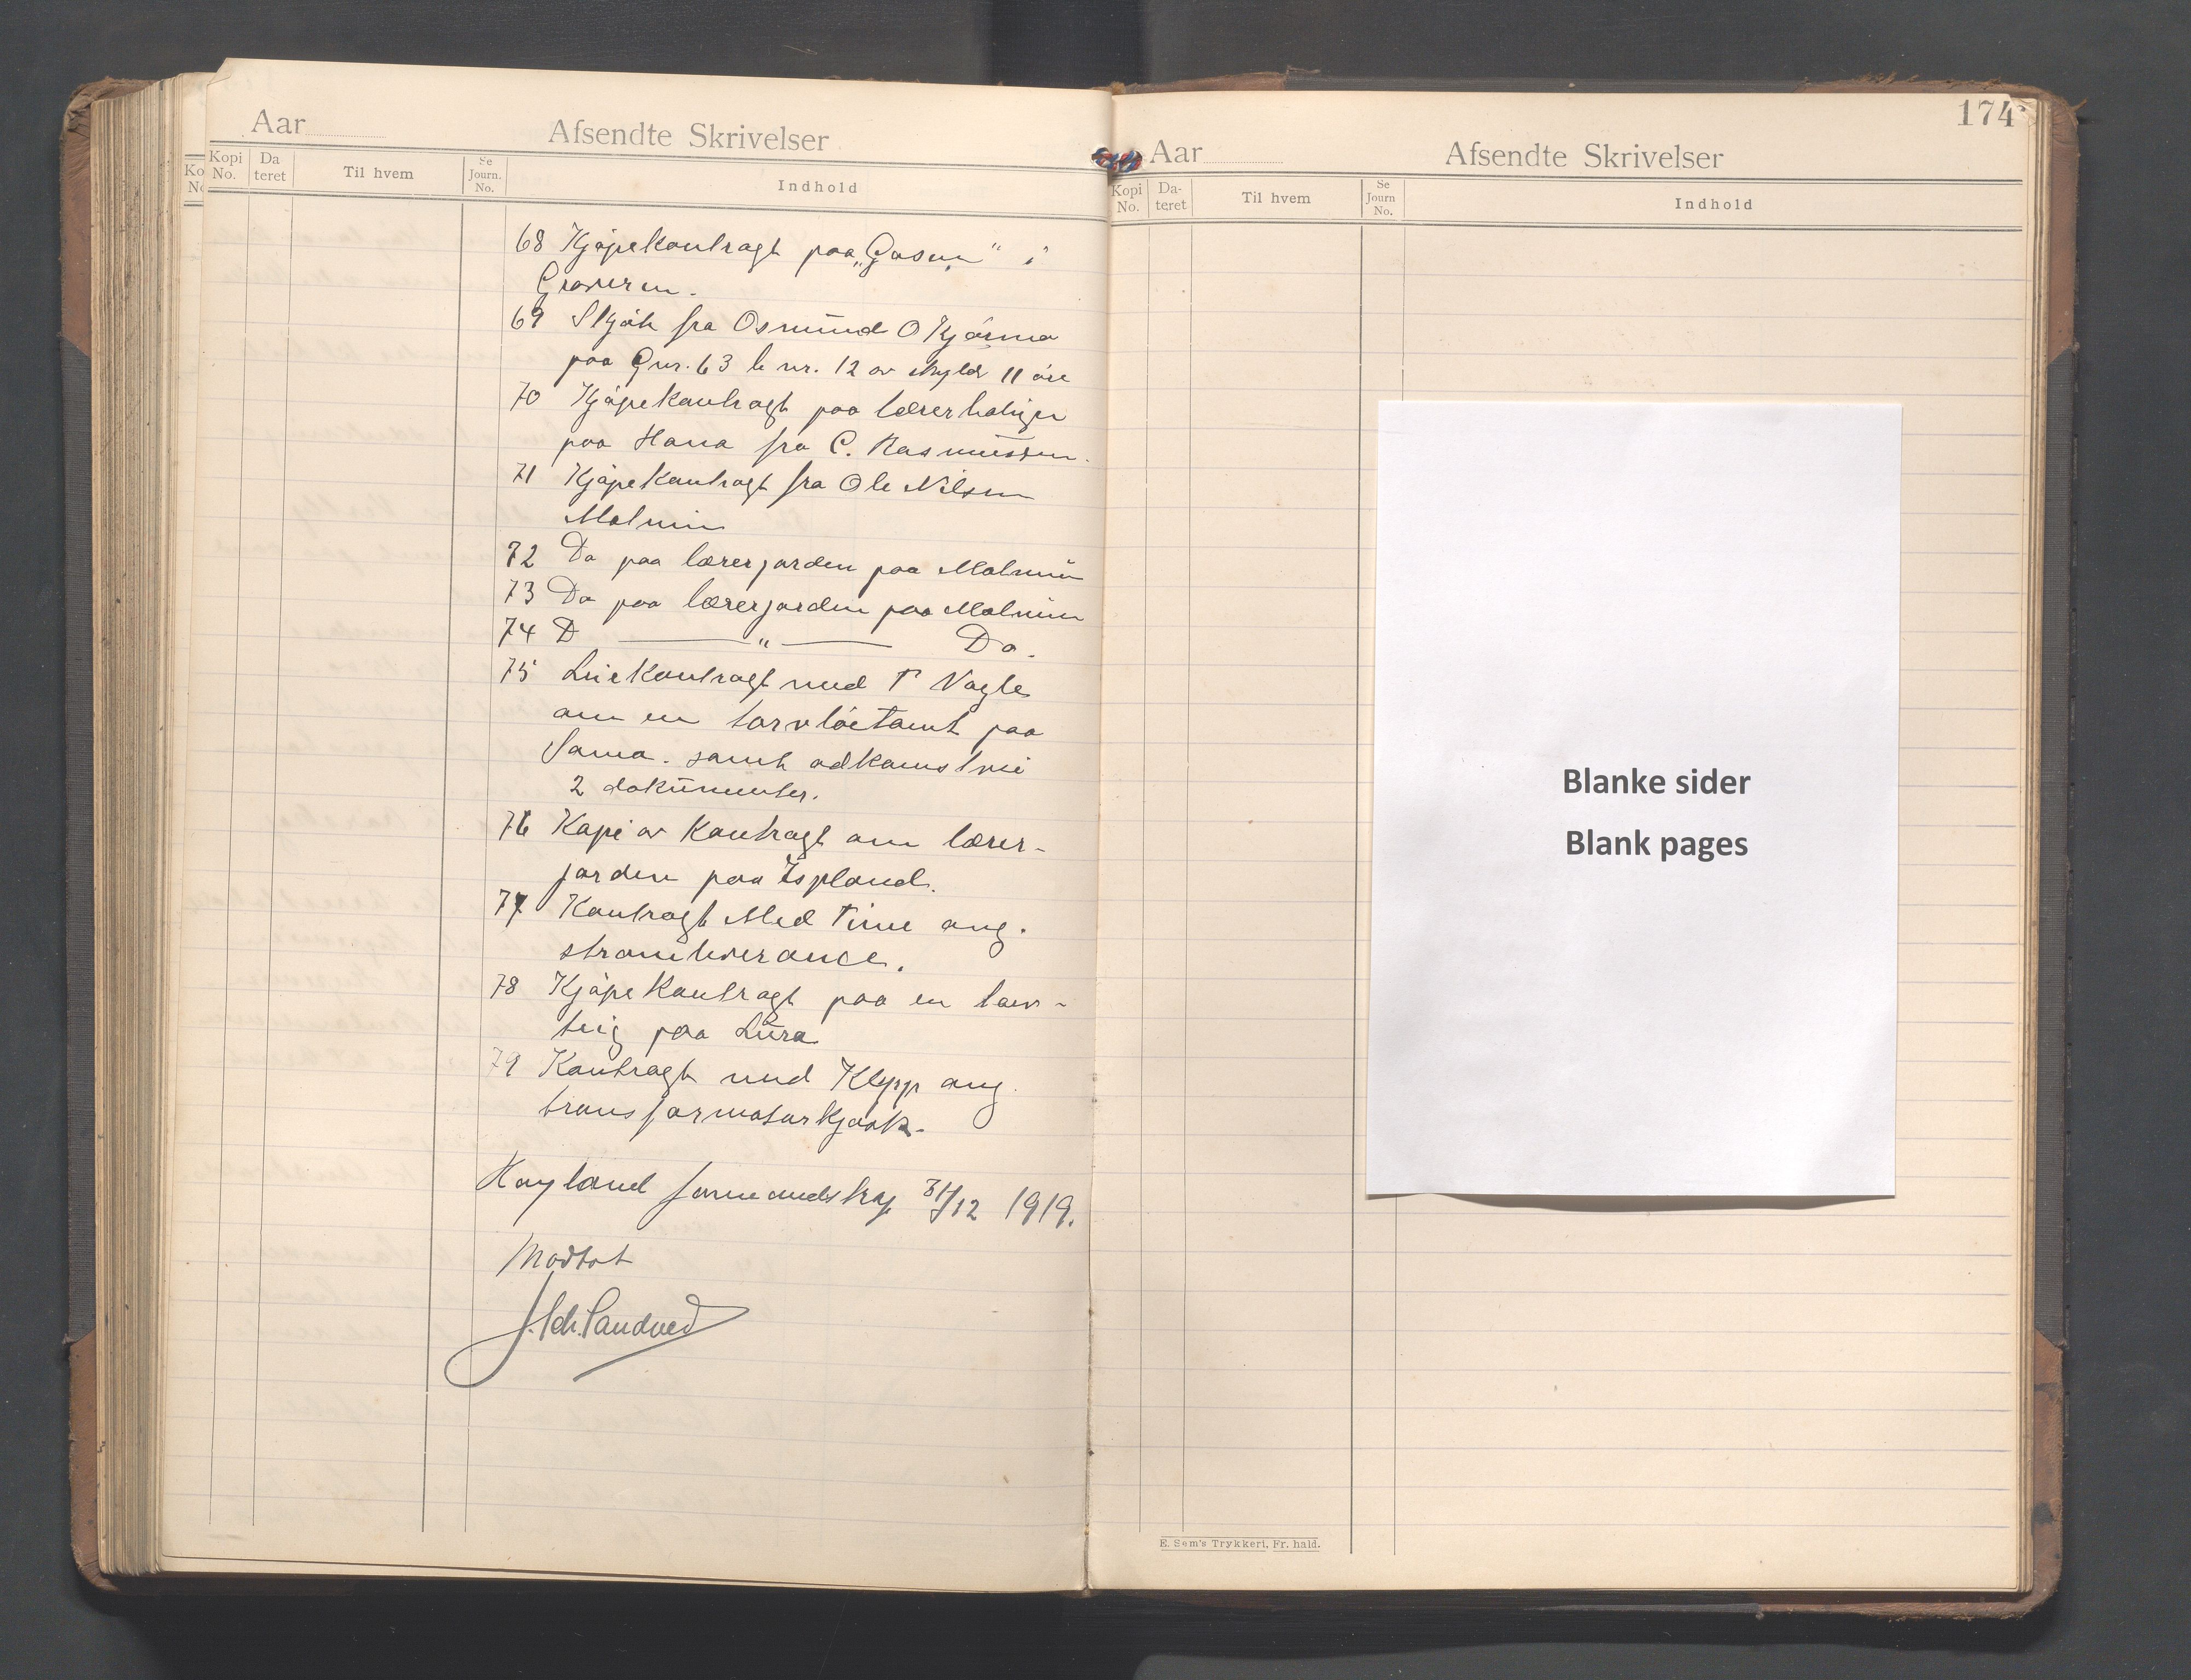 Aar
Afsendte Skrivelser
Kopi No.
Da teret
Til hvem
Se Journ. No.
Indhold
68 Kjøpekontragt paa „Gasen" i
Graveren.
69 Skjøte fra Osmund O Kjosna
paa Gnr. 63 b nr. 12 av skyld 11 øre
70 Kjøpekontragt paa lærerbolig
paa Hana fra C. Rasmussen.
71 Kjøpekontragt fra Ole Nilsen
Malmin
72 Do paa lærerjorden paa Malmin
73 Do paa lærerjorden paa Malmin
74 D — „ — Do.
75 Leiekontragt med T Vagle
om en torvløetomt paa
Soma. samt adkomstvei
2 dokumenter.
76 Kopi av Kontragt om lærer-
jorden paa Espland.
77 Kontragt Med Time ang.
strømleverance.
78 Kjøpekontragt paa en torv-
teig paa Lura
79 Kontragt med Klepp ang.
transformatorkjosk.
Høyland formandskap 31/12 1919.
Modtat
J. Sch. Sandved
174
Aar
Afsendte Skrivelser
Kopi No.
Da- teret
Til hvem
Se Journ No.
Indhold
Blanke sider
Blank pages
E. Sem's Trykkeri, Fr. hald.